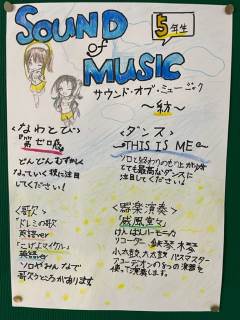 SOUND
of
MUSIC
5年生
サウンド・オブ・ミュージック
～紡～
<なわとび>
『第ゼロ感』
どんどんむずかしく
なっていく技に注目
してください!
<歌>
ドレミの歌
英語ver
こげよマイケル
英語
ソロやみんなで
歌うところがあります
<ダンス>
～THIS IS ME～
ソロと終わりの
とても最高なダンスに
注目してください!
<器楽演奏>
威風堂々
けんばんハーモニカ
リコーダー 鉄琴 木琴
小太鼓 大太鼓 バスマスター
アコーディオンの8つの楽器を
使って演奏します。